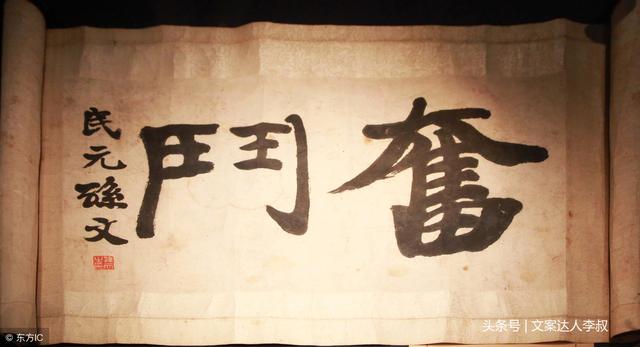 奮鬥
民元孫文
头条号 | 文案达人李叔
© 东方IC